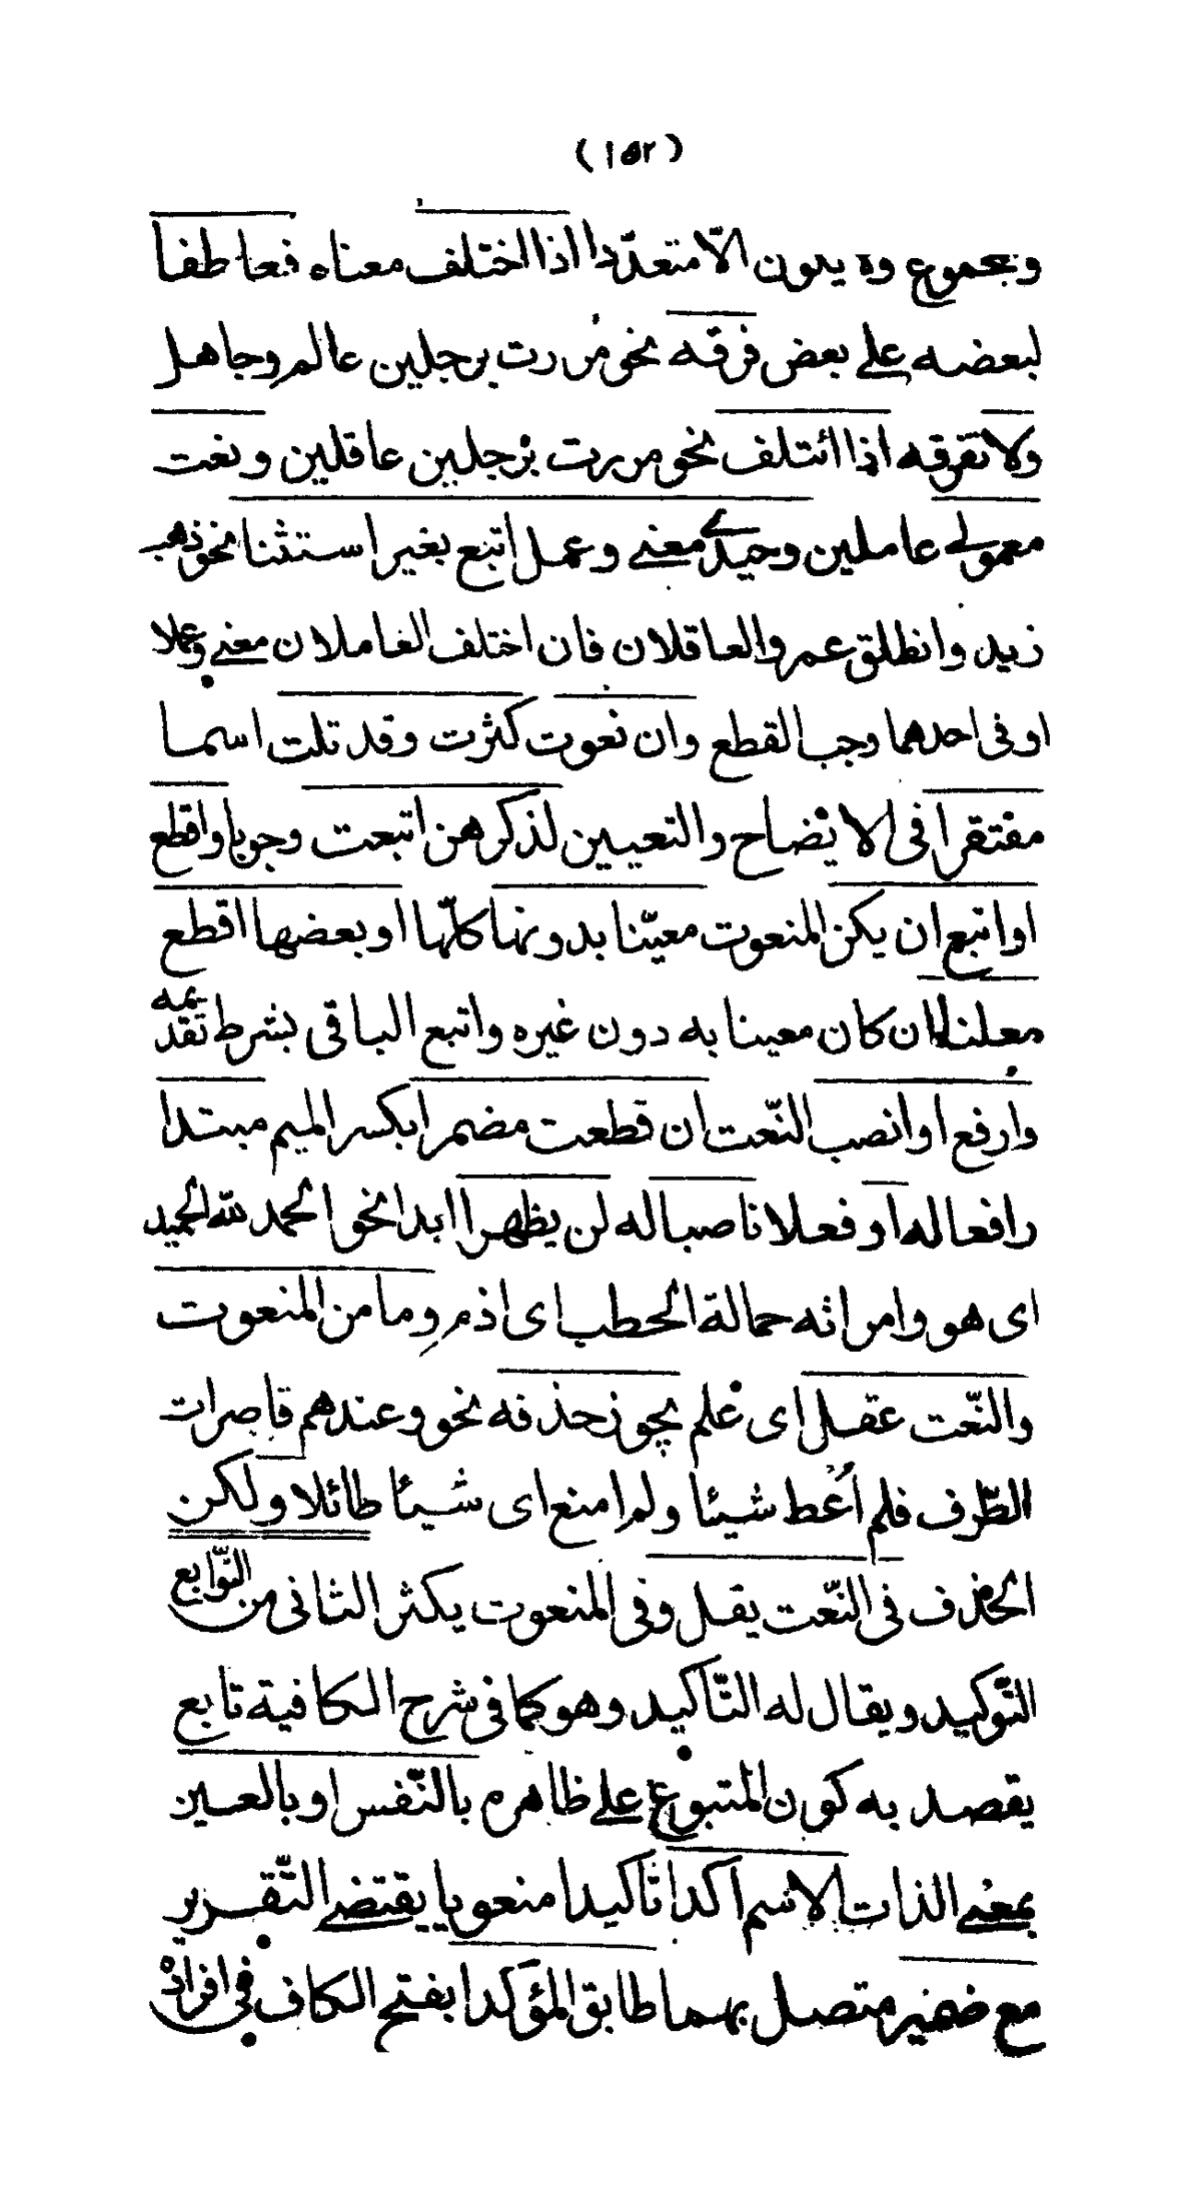 (١٥٢)
ومجموع ولا يكون الّا متعدّدا اذا اختلف معناه فعاطفا
لبعضه على بعض فرقه نحو مررت برجلين عالم وجاهل
ولا تفرقه اذا ائتلف نحو مررت برجلين عاقلين ونعت
معمولى عاملين وحيدى معنى وعمل اتبع بغير استثنا نحو ذهب
زيد وانطلق عمرو العاقلان فان اختلف العاملان معنى وعملا
او فى احدهما وجب القطع وان نعوت كثرت وقد تلت اسما
مفتقرا فى الايضاح والتعيين لذكرهن اتبعت وجوبا واقطع
او اتبع ان يكن المنعوت معيّنا بدونها كلّها او بعضها اقطع
معلنا ان كان معينا به دون غيره واتبع الباقى بشرط تقديمه
وارفع او انصب النّعت ان قطعت مضمرا بكسر الميم مبتدا
رافعا له او فعلا ناصبا له لن يظهرا ابدا نحو الحمد لله الحميد
اى هو وامراته حمالة الحطب اى اذم وما من المنعوت
والنّعت عقل اى علم يجوز حذفه نحو وعندهم قاصرات
الطّرف فلم اُعط شيئا ولم امنع اى شيئا طائلا ولكن
الحذف فى النّعت يقل وفى المنعوت يكثر الثانى من التّوابع
التّوكيد ويقال له التّأكيد وهو كما فى شرح الكافية تابع
يقصد به كون المتبوع على ظاهره بالنّفس او بالعين
بمعنى الذات الاسم اكدا تأكيدا معنويا يقتضى التّقرير
مع ضمير متصل بهما طابق المؤكدا بفتح الكاف فى افراده